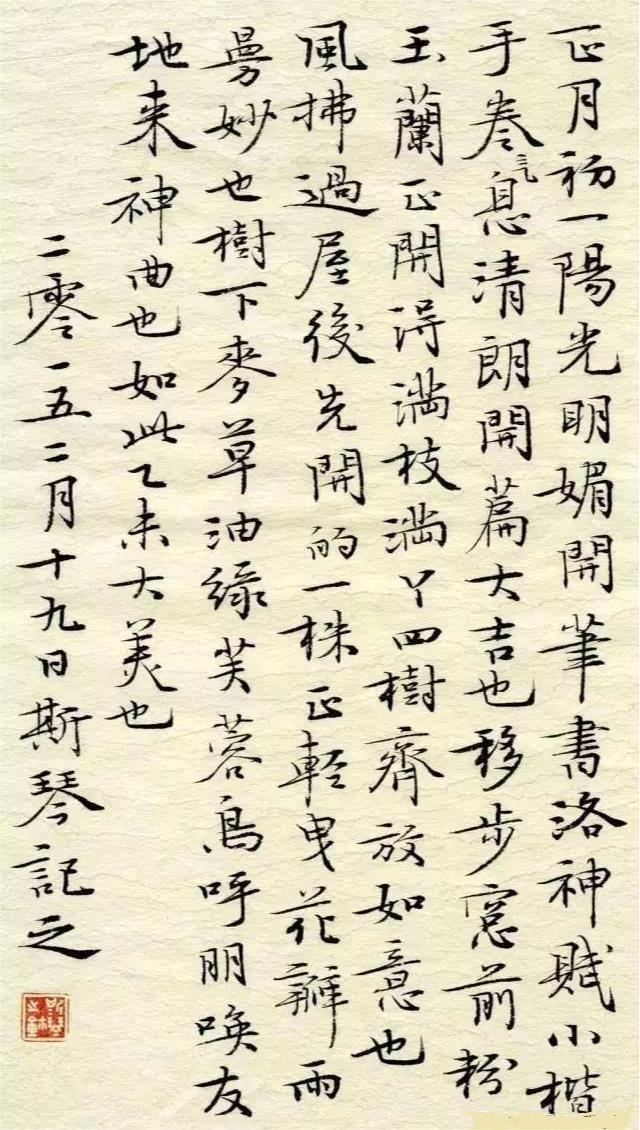 正月初一陽光明媚開筆書洛神賦小楷
手卷氣息清朗開篇大吉也移步窓前粉
玉蘭正開得滿枝滿丫四樹齊放如意也
風拂過屋後先開的一株正輕曳花瓣雨
曼妙也樹下麥草油綠芙蓉鳥呼朋喚友
地来神曲也如此乙未大美也
二零一五二月十九日斯琴記之